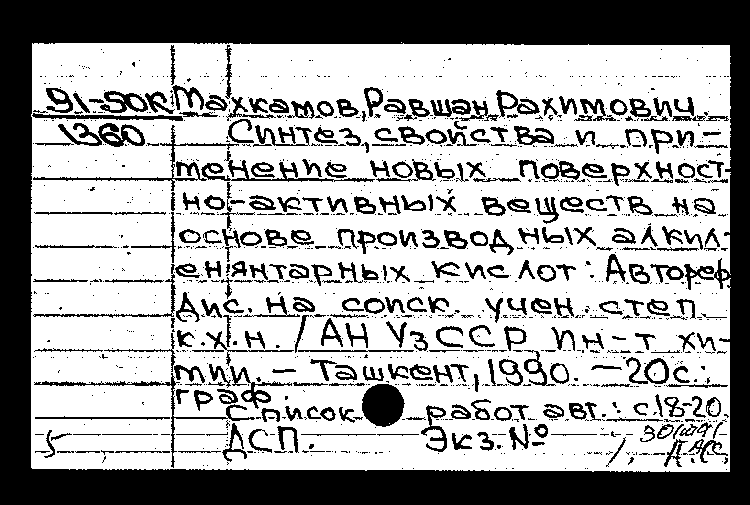 91-50К Махкамов, Равшан Рахимович.
1360 Синтез, свойства и при-
менение новых поверхност-
но-активных веществ на
основе производных алкил-
енянтарных кислот: Автореф.
Дис. на соиск. учен. степ.
к.х.н. / АН УзССР, Ин-т хи-
мии. - Ташкент, 1990. - 20с.:
граф.
Список работ авт.: с.18-20.
5 ДСП. Экз.№